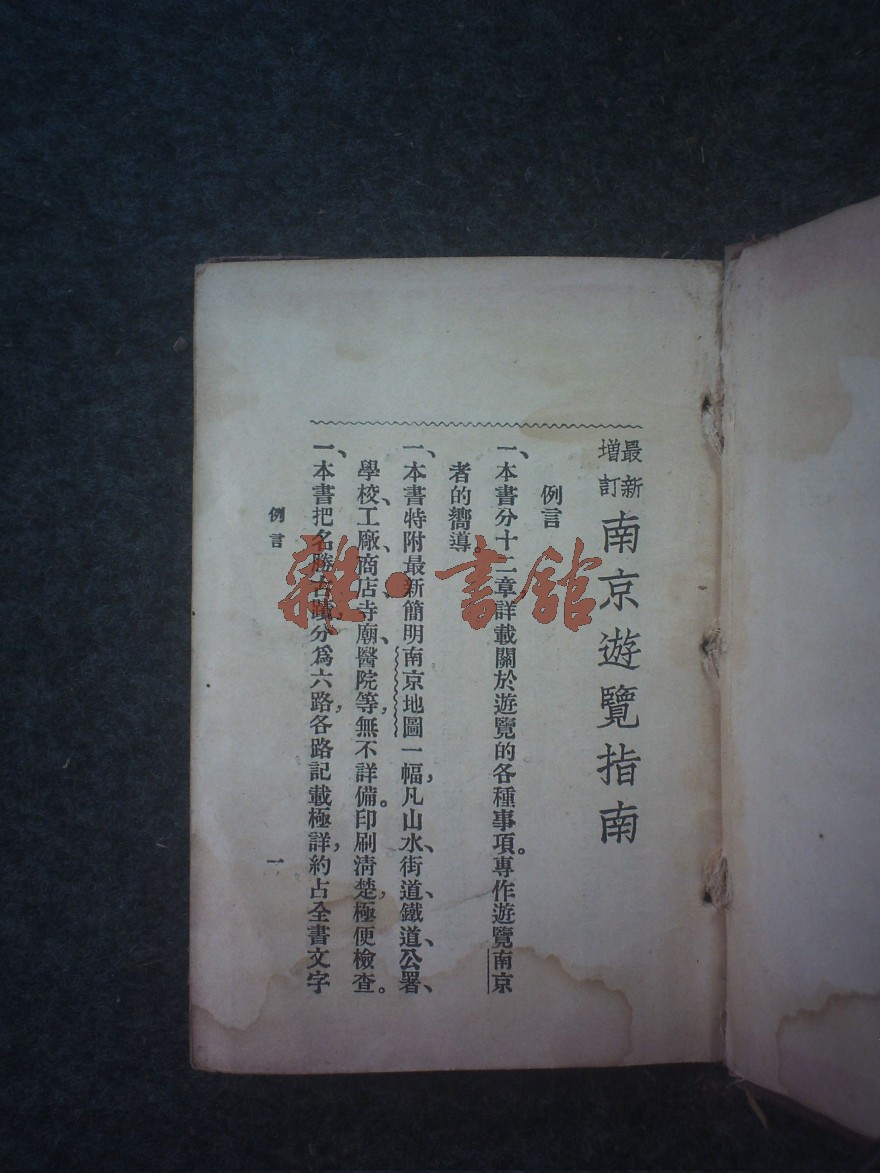 最新
增訂
南京遊覽指南
例言
一、本書分十二章詳載關於遊覽的各種事項。專作遊覽南京
者的嚮導。
一、本書特附最新簡明南京地圖一幅，凡山水、街道、鐵道、公署、
學校、工廠、商店、寺廟、醫院等，無不詳備。印刷清楚，極便檢查。
一、本書把名勝古蹟分爲六路，各路記載極詳，約占全書文字
例言
一
雜·書館